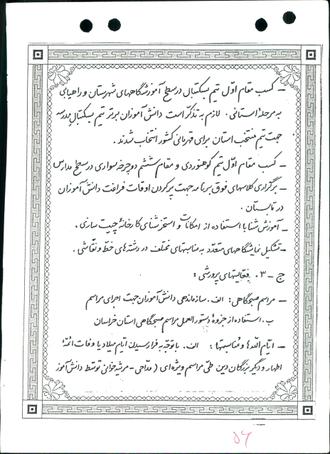 - کسب مقام اوّل تیم بسکتبال در سطح آموزشگاههای شهرستان و راهیابی
به مرحلهٔ استانی. لازم به تذکر است دانش‌آموزان برتر تیم بسکتبال مدرسه
جهت تیم منتخب استان برای قهرمانی کشور انتخاب شدند.
- کسب مقام اوّل تیم کوهنوردی و مقام ششم دوچرخه سواری در سطح مدارس
- برگزاری کلاسهای فوق برنامه جهت پر کردن اوقات فراغت دانش آموزان
در تابستان.
- آموزش شنا با استفاده از امکانات و استخر شنای کارخانهٔ چیت سازی.
- تشکیل نمایشگاههای متعدد به مناسبتهای مختلف در رشته‌های خط و نقاشی.
ج - ۳. فعالیتهای پرورشی:
- مراسم صبحگاهی: الف. سازماندهی دانش آموزان جهت اجرای مراسم
ب. استفاده از جزوهٔ دستورالعمل مراسم صبحگاهی استان خراسان
- ایام الله‌ها و مناسبتها: الف. با توجه به فرا رسیدن ایام میلاد یا وفات ائمهٔ
اطهار و دیگر بزرگان دین طی مراسم ویژه‌ای (مداحی - مرثیه خوانی توسط دانش آموز
۵۶